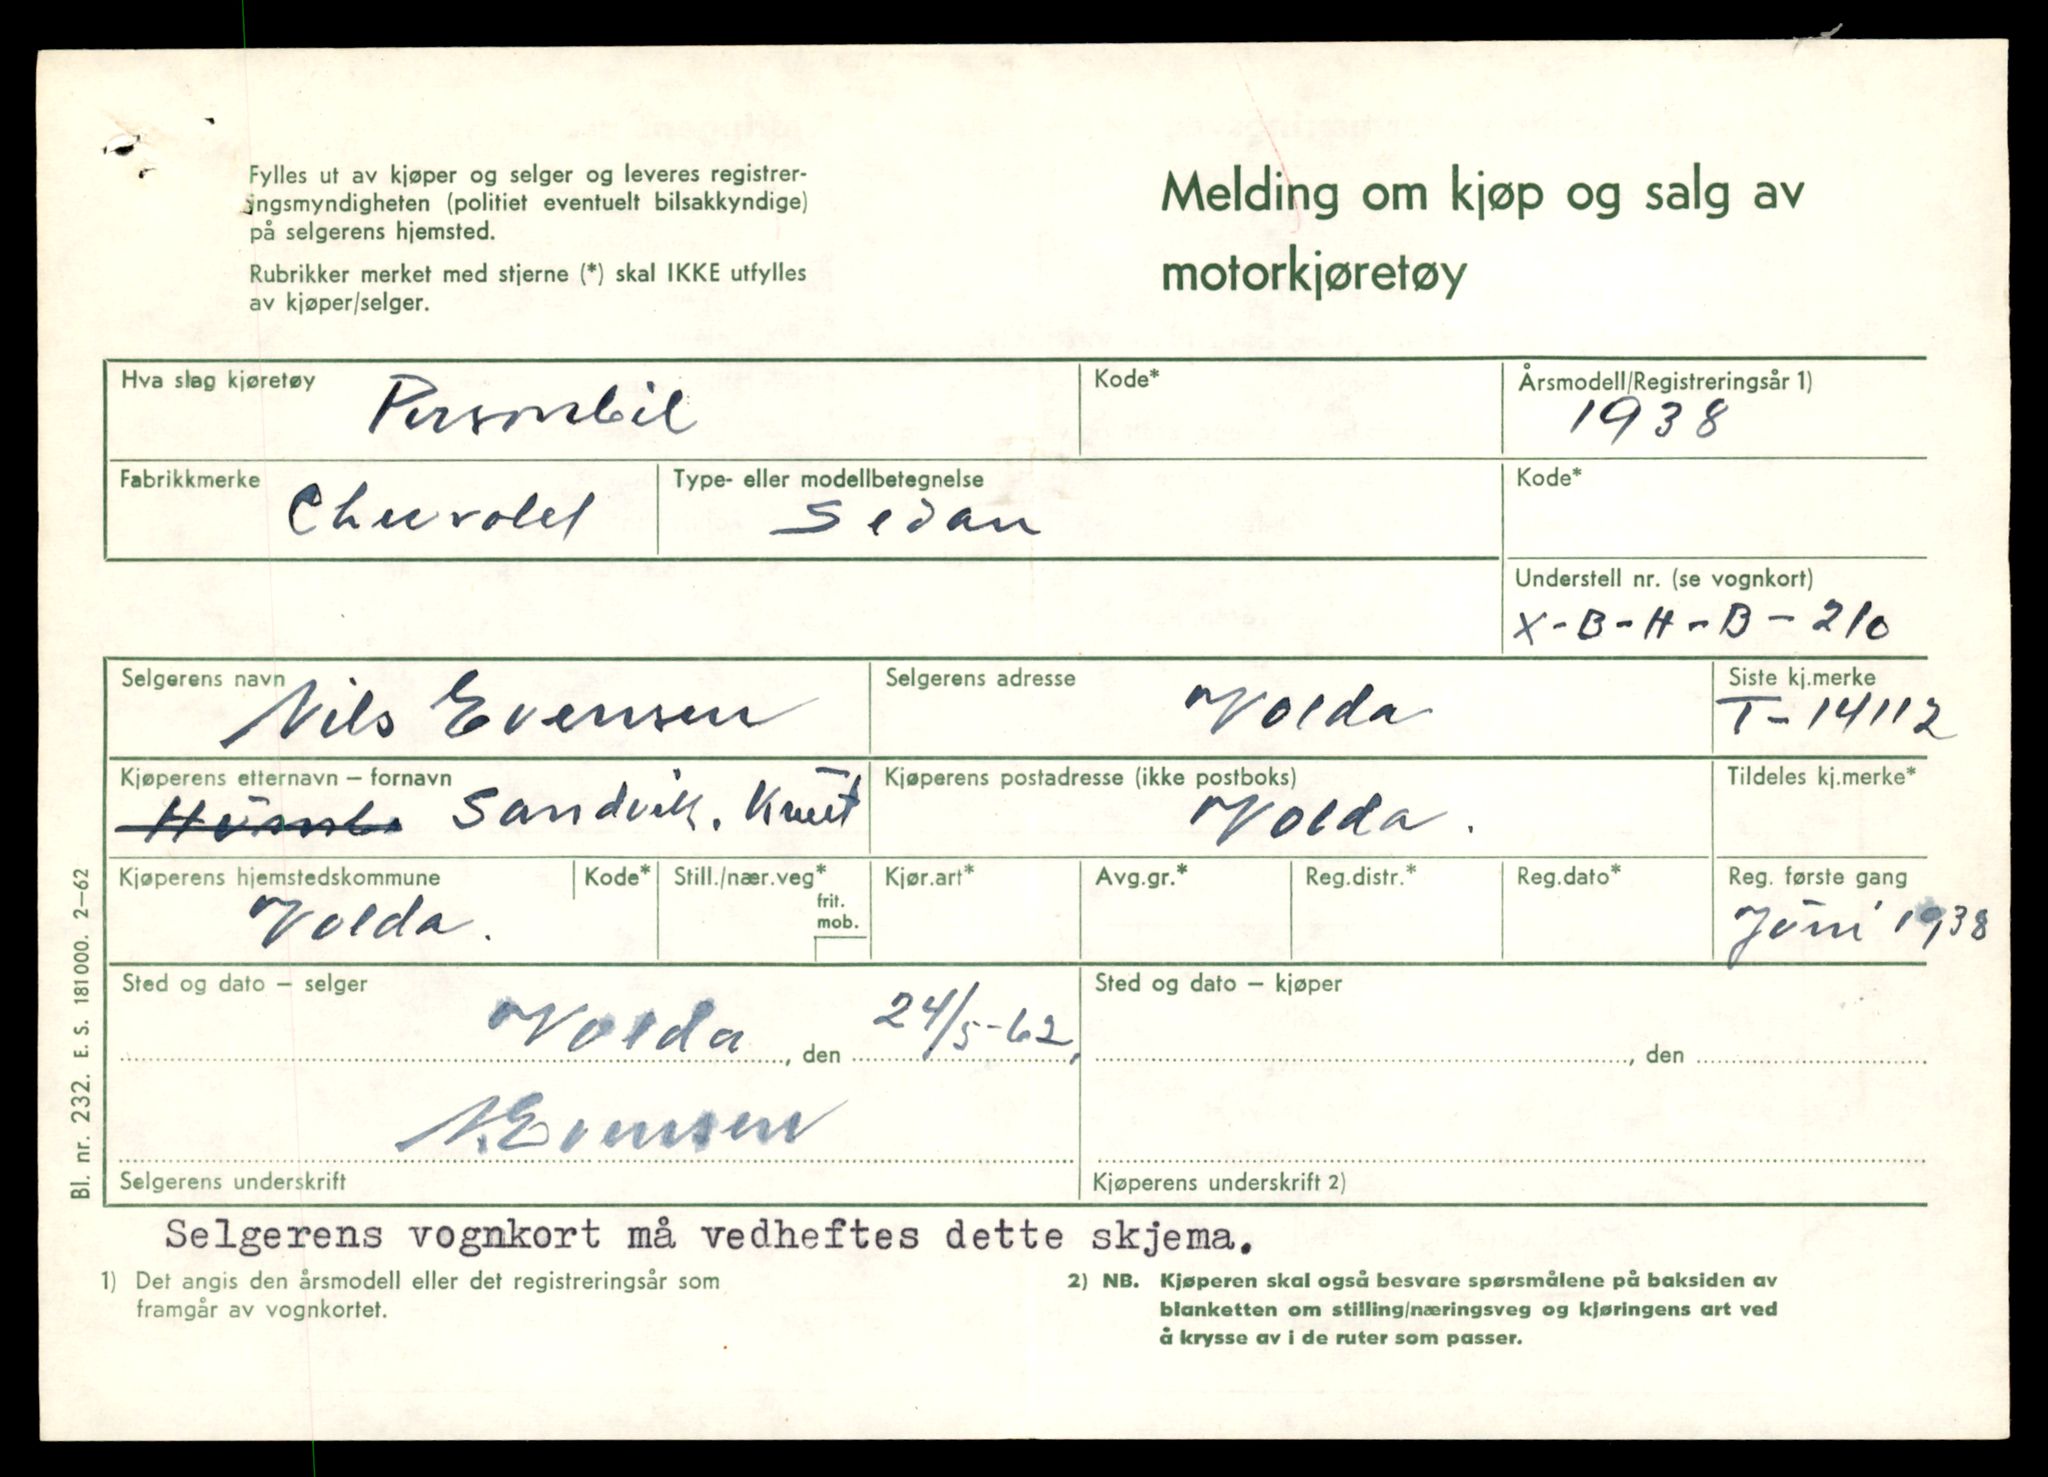 Fylles ut av kjøper og selger og leveres registrer-
ingsmyndigheten (politiet eventuelt bilsakkyndige)
på selgerens hjemsted.
Rubrikker merket med stjerne (*) skal IKKE utfylles
av kjøper/selger.
Melding om kjøp og salg av
motorkjøretøy
Hva slag kjøretøy
Personbil
Kode*
Årsmodell/Registreringsår 1)
1938
Fabrikkmerke
Chevrolet
Type- eller modellbetegnelse
Sedan
Kode*
Understell nr. (se vognkort)
X-B-H-B-210
Selgerens navn
Nils Evensen
Selgerens adresse
Volda
Siste kj.merke
T-14112
Kjøperens etternavn – fornavn
Sandvik, Knut
Kjøperens postadresse (ikke postboks)
Volda.
Tildeles kj.merke*
Kjøperens hjemstedskommune
Volda.
Kode*
Still./nær.veg*
frit.
mob.
Kjør.art*
Avg.gr.*
Reg.distr.*
Reg.dato*
Reg. første gang
Juni 1938
Sted og dato – selger
Volda, den 24/5-62,
N. Evensen
Selgerens underskrift
Sted og dato – kjøper
, den
Kjøperens underskrift 2)
Selgerens vognkort må vedheftes dette skjema.
1) Det angis den årsmodell eller det registreringsår som
framgår av vognkortet.
2) NB. Kjøperen skal også besvare spørsmålene på baksiden av
blanketten om stilling/næringsveg og kjøringens art ved
å krysse av i de ruter som passer.
Bl. nr. 232. E. S. 181000. 2–62